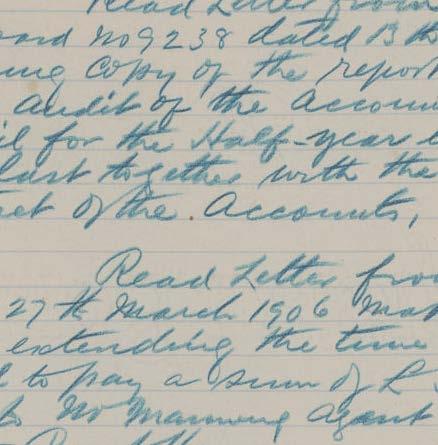 Read Letter from
No 9238 dated 13th
Copy of the report
audit of the accoun
il for the Half-year e
last together with the
of the Accounts,
Read Letter fro
27th March 1906
extending the time
to pay a sum of
to Mr Manning Agent